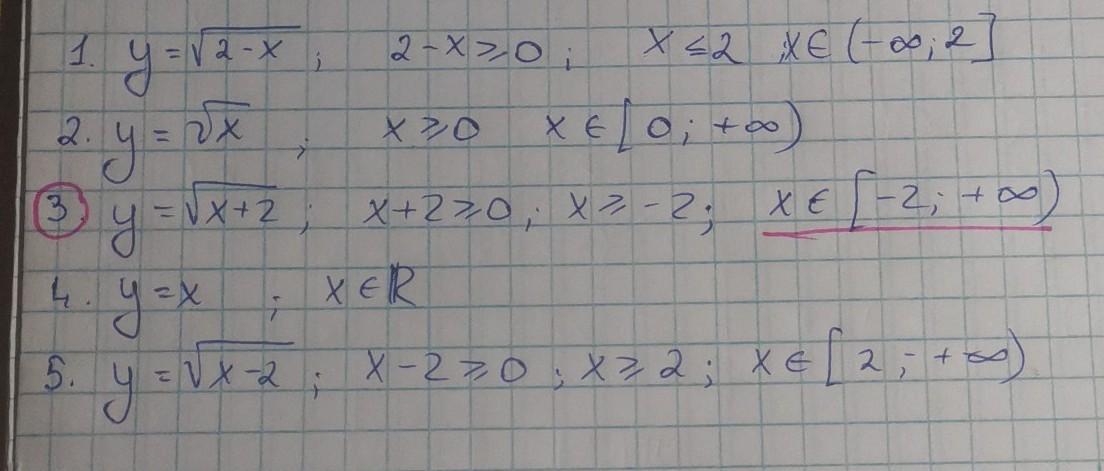 1. y = √2-x ; 2-x ⩾ 0 ; x ≤ 2 x ∈ (-∞; 2]
2. y = √x ; x ⩾ 0 x ∈ [0; +∞)
3. y = √x+2 ; x+2 ⩾ 0 ; x ⩾ -2 ; x ∈ [-2; +∞)
4. y = x ; x ∈ ℝ
5. y = √x-2 ; x-2 ⩾ 0 ; x ⩾ 2 ; x ∈ [2; +∞)